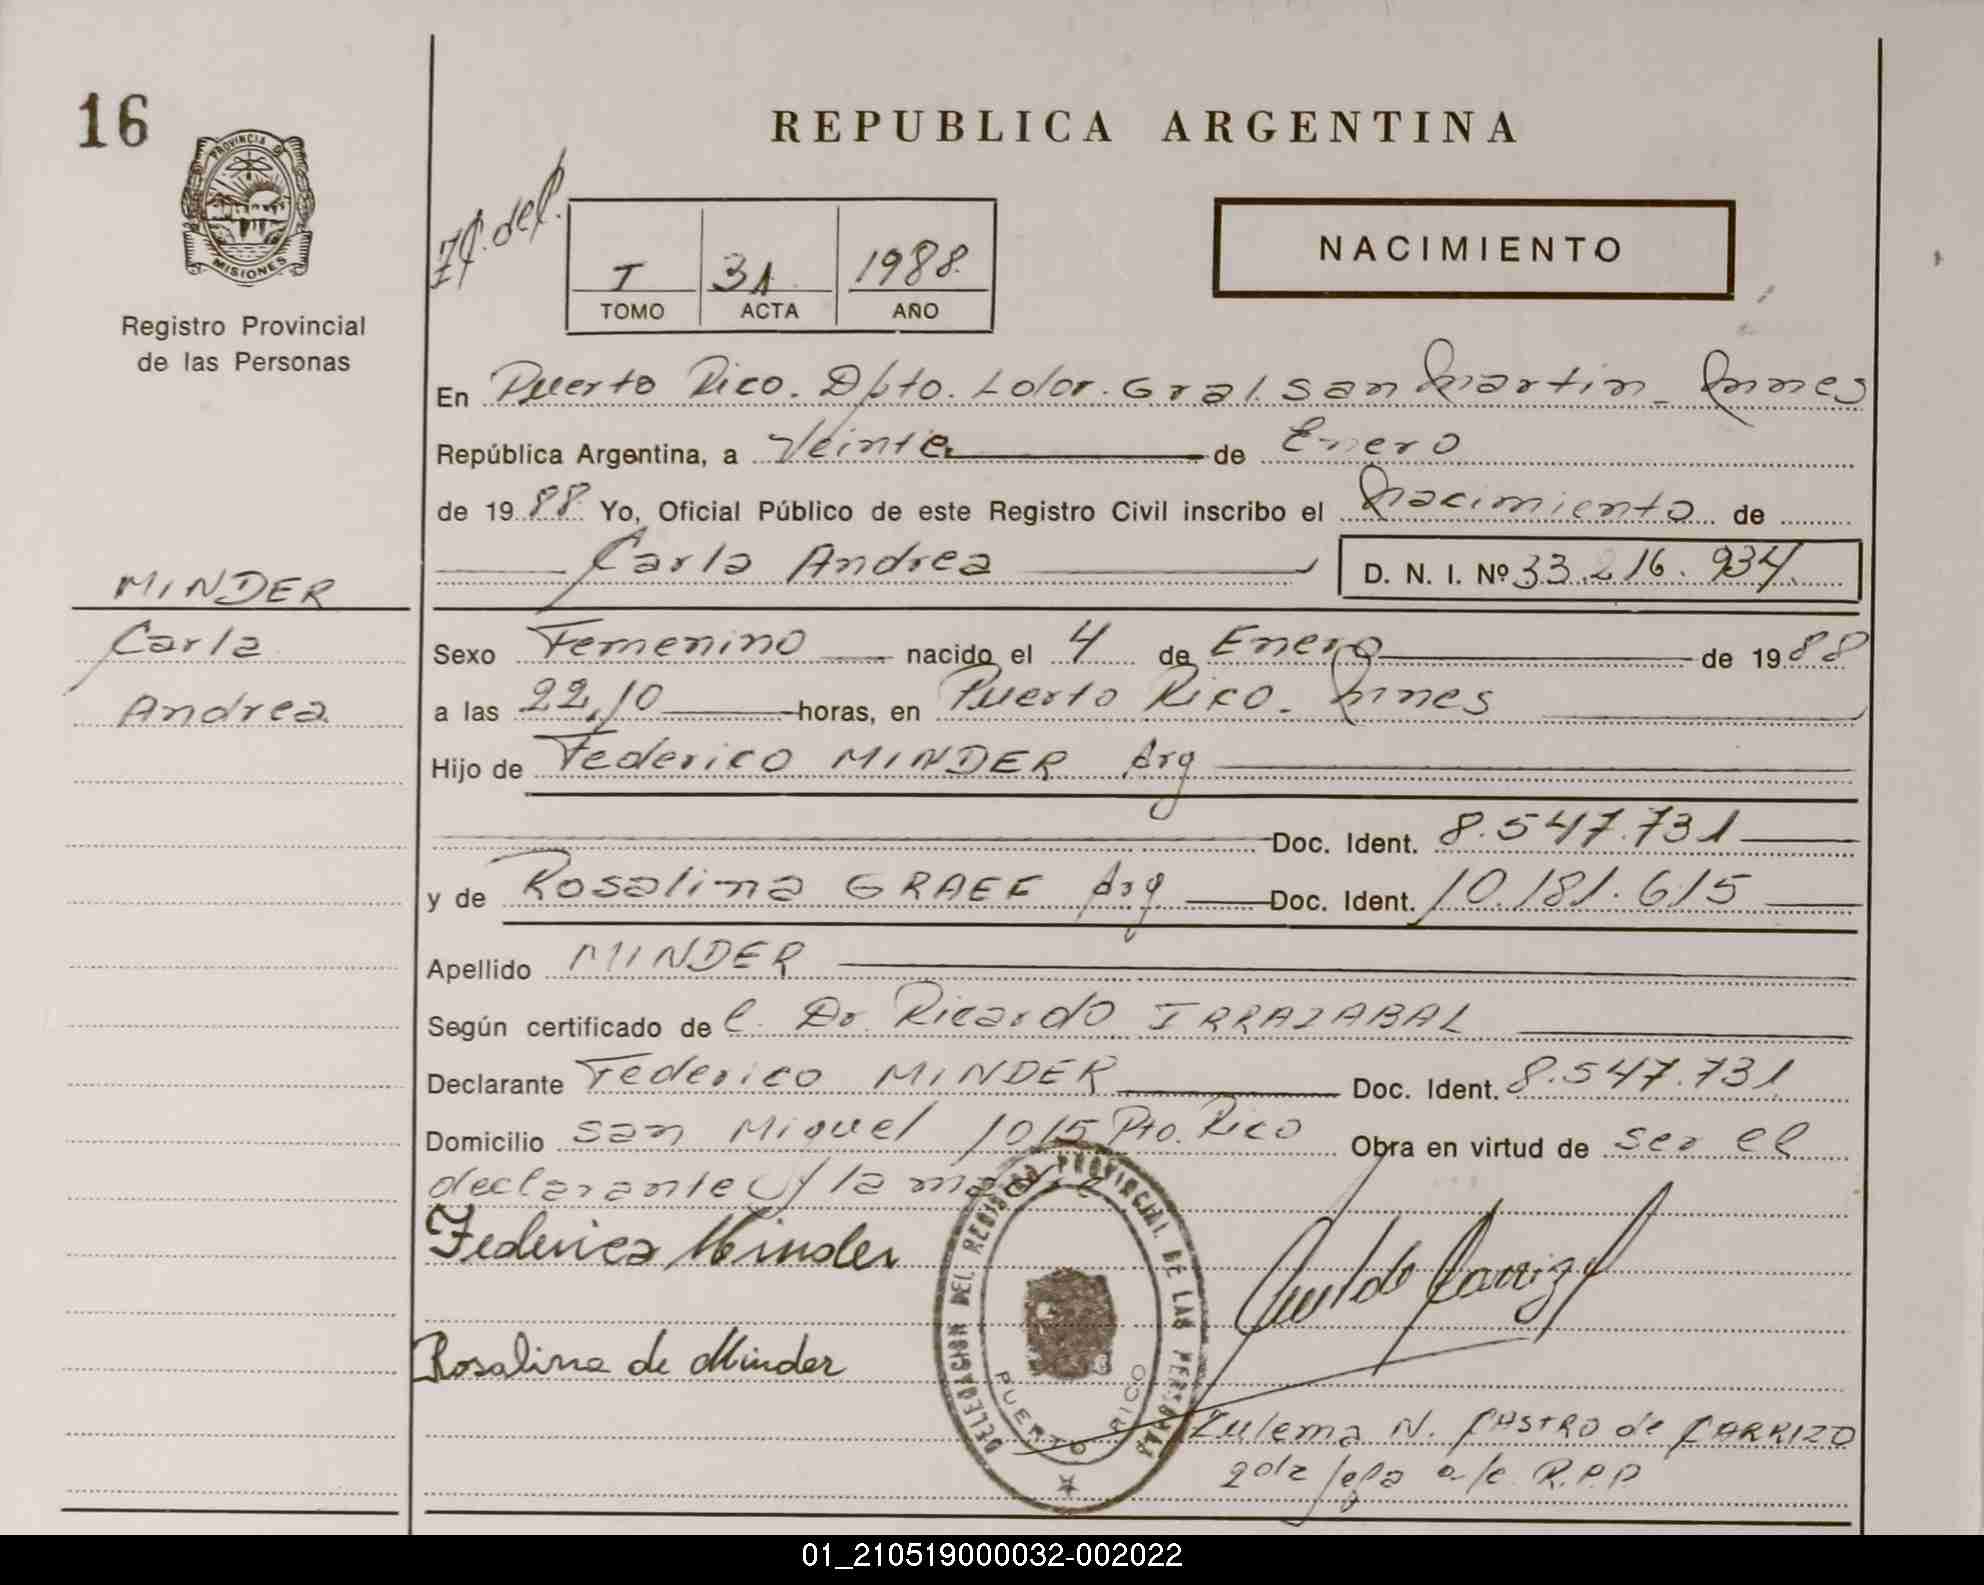 16
PROVINCIA DE
MISIONES
Registro Provincial
de las Personas
REPUBLICA ARGENTINA
NACIMIENTO
T 31 1988
TOMO ACTA AÑO
En Puerto Rico. Dpto. Ldor. Gral. San Martin - Mnes
República Argentina, a Veinte de Enero
de 1988 Yo, Oficial Público de este Registro Civil inscribo el Nacimiento de
Carla Andrea D. N. I. Nº 33.216.934
MINDER
Carla
Andrea
Sexo Femenino nacido el 4 de Enero de 1988
a las 22,10 horas, en Puerto Rico - Mnes
Hijo de Federico MINDER Arg
Doc. Ident. 8.547.731
y de Rosalina GRAEF Arg Doc. Ident. 10.181.615
Apellido MINDER
Según certificado del Dr Ricardo IRRAZABAL
Declarante Federico MINDER Doc. Ident. 8.547.731
Domicilio San Miguel 1015 Pto. Rico Obra en virtud de ser el
declarante y la madre
Federico Minder
Rosalina de Minder
DELEGACION DEL REGISTRO PROVINCIAL DE LAS PERSONAS
PUERTO RICO
Zulema N. CASTRO de CARRIZO
2da Jefa a/c R.P.P
01_210519000032-002022